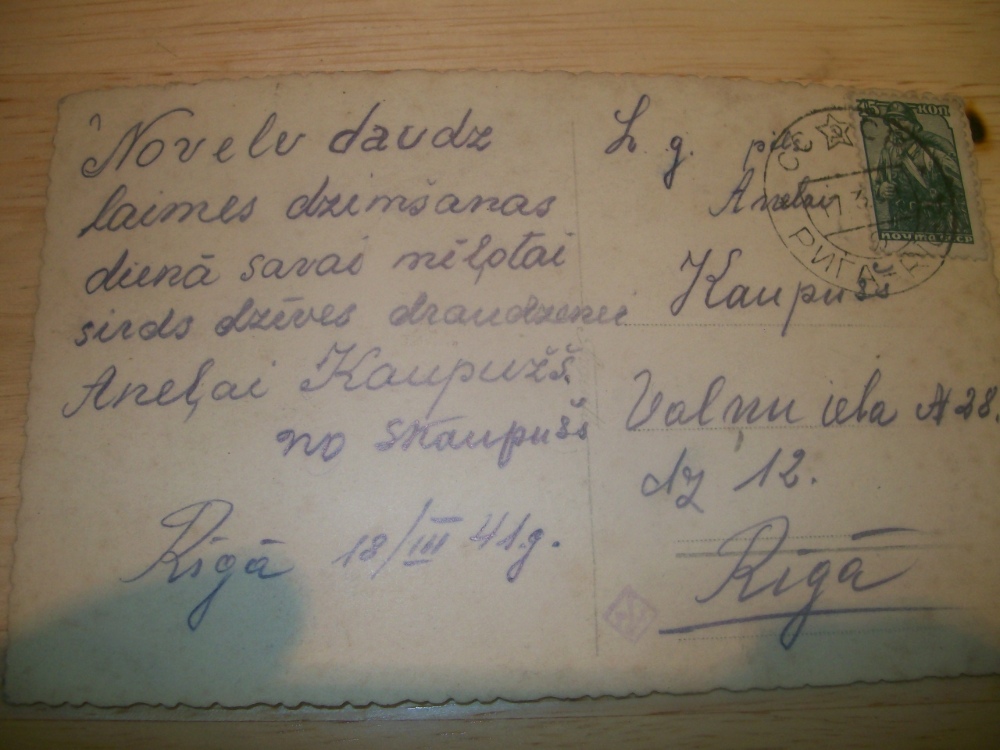 Novelu daudz
laimes dzimšanas
dienā savai mīļotai
sirds dzīves draudzenei
Aneļai Kaupužš.
no SKaupušs
Rīgā 18/III 41.g.
L. g.
Anelai
Kaupušs
Vaļņu iela № 28.
dz 12.
Rīgā
45 КОП
ПОЧТА СССР
РИГА